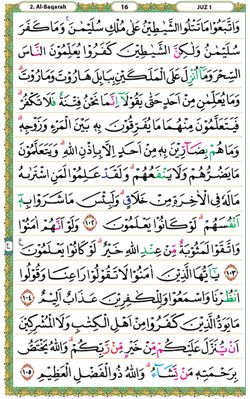 2. Al-Baqarah 16 JUZ 1
وَاتَّبَعُوْا مَا تَتْلُوا الشَّيٰطِيْنُ عَلٰى مُلْكِ سُلَيْمٰنَ ۚ وَمَا كَفَرَ
سُلَيْمٰنُ وَلٰكِنَّ الشَّيٰطِيْنَ كَفَرُوْا يُعَلِّمُوْنَ النَّاسَ
السِّحْرَ وَمَآ اُنْزِلَ عَلَى الْمَلَكَيْنِ بِبَابِلَ هَارُوْتَ وَمَارُوْتَ ۗ
وَمَا يُعَلِّمٰنِ مِنْ اَحَدٍ حَتّٰى يَقُوْلَآ اِنَّمَا نَحْنُ فِتْنَةٌ فَلَا تَكْفُرْ ۗ
فَيَتَعَلَّمُوْنَ مِنْهُمَا مَا يُفَرِّقُوْنَ بِهٖ بَيْنَ الْمَرْءِ وَزَوْجِهٖ ۗ
وَمَا هُمْ بِضَاۤرِّيْنَ بِهٖ مِنْ اَحَدٍ اِلَّا بِاِذْنِ اللّٰهِ ۗ وَيَتَعَلَّمُوْنَ
مَا يَضُرُّهُمْ وَلَا يَنْفَعُهُمْ ۗ وَلَقَدْ عَلِمُوْا لَمَنِ اشْتَرٰىهُ
مَا لَهٗ فِى الْاٰخِرَةِ مِنْ خَلَاقٍ ۗ وَلَبِئْسَ مَا شَرَوْا بِهٖٓ
اَنْفُسَهُمْ ۗ لَوْ كَانُوْا يَعْلَمُوْنَ ۝١٠٢ وَلَوْ اَنَّهُمْ اٰمَنُوْا
وَاتَّقَوْا لَمَثُوْبَةٌ مِّنْ عِنْدِ اللّٰهِ خَيْرٌ ۗ لَوْ كَانُوْا يَعْلَمُوْنَ
۝١٠٣ يٰٓاَيُّهَا الَّذِيْنَ اٰمَنُوْا لَا تَقُوْلُوْا رَاعِنَا وَقُوْلُوا
انْظُرْنَا وَاسْمَعُوْا ۗ وَلِلْكٰفِرِيْنَ عَذَابٌ اَلِيْمٌ ۝١٠٤
مَا يَوَدُّ الَّذِيْنَ كَفَرُوْا مِنْ اَهْلِ الْكِتٰبِ وَلَا الْمُشْرِكِيْنَ
اَنْ يُّنَزَّلَ عَلَيْكُمْ مِّنْ خَيْرٍ مِّنْ رَّبِّكُمْ ۗ وَاللّٰهُ يَخْتَصُّ
بِرَحْمَتِهٖ مَنْ يَّشَاۤءُ ۗ وَاللّٰهُ ذُو الْفَضْلِ الْعَظِيْمِ ۝١٠٥